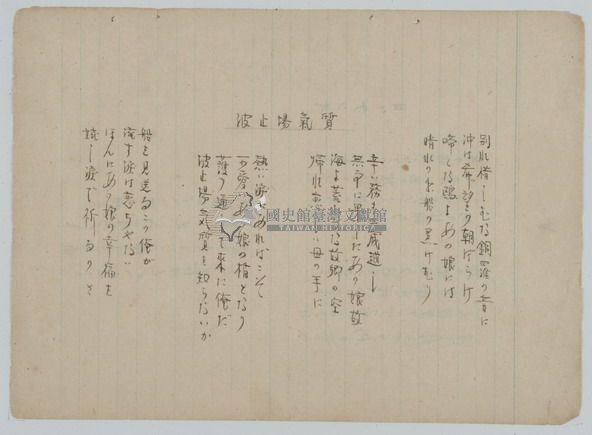 波止場氣質
別れ惜しむな銅鑼の音に
沖は希望の朝ぼらけ
啼くな鷗よあの娘には
晴れの出船の黒けむり
辛い務も年
無事に果したあの娘故
海よ
る故郷の空
帰れ
い母の手に
熱い涙もあればこそ
可愛いあの娘の楯となり
護り通して來た俺だ
波止場氣質を知らないか
船を見送るこの俺が
流す涙は
ほんにあの娘の幸福を
嬉し涙で祈るのさ
國史館臺灣文獻館
TAIWAN HISTORICA